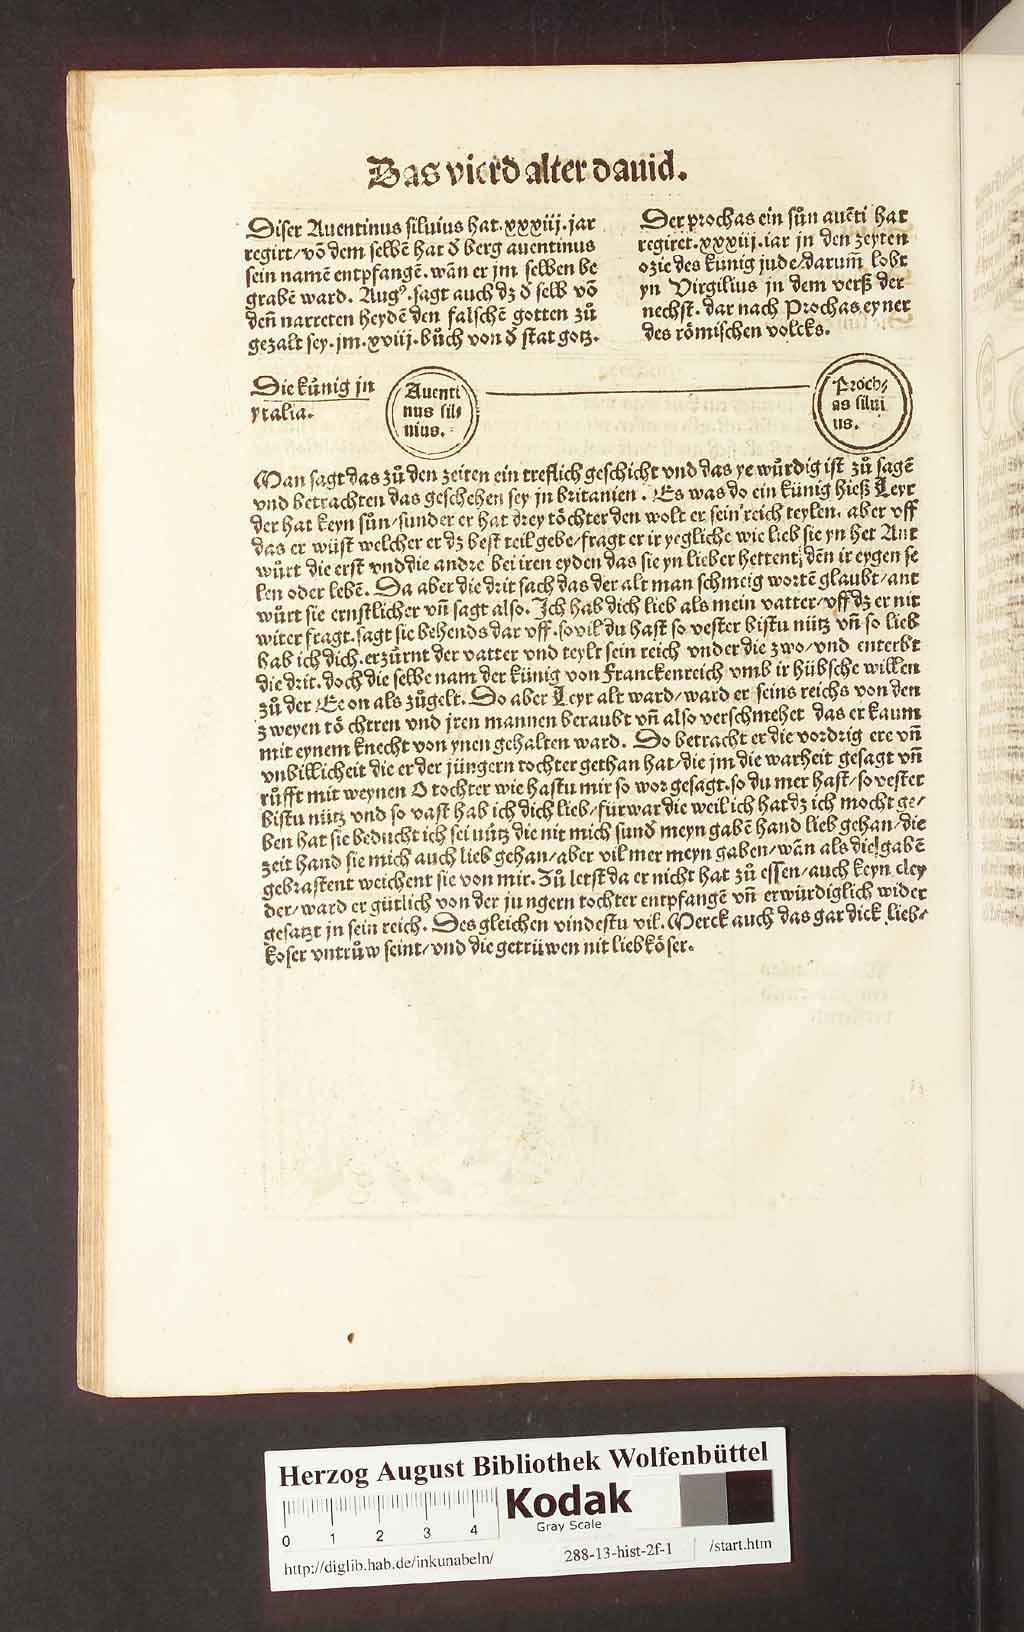 Das vierd alter dauid.
Diser Auentinus siluius hat.xxxiij.jar
regirt/vō dem selbē hat d̕ berg auentinus
sein namē entpfangē.wān er jm selben be
grabē ward. Augꝰ.sagt auch dz d̕ selb vō
den̄ narreten heydē den falschē gotten zů
gezalt sey.jm.xviij.bůch von d̕ stat gotz.
Der prochas ein sůn auēti hat
regiret.xxxiij.iar jn den zeyten
ozie des kunig jude/darum̄ lobt
yn Virgilius jn dem verß der
nechst.dar nach Prochas eyner
des römischen volcks.
Die kůnig jn
ytalia.
Auenti
nus sil⸗
uius.
Proch⸗
as silui
us.
Man sagt das zů den zeiten ein treflich geschicht vnd das ye wůrdig ist zů sagē
vnd betrachten das geschehen sey jn britanien. Es was do ein künig hieß Leyr
der hat keyn sůn/sunder er hat drey töchter den wolt er sein reich teylen. aber vff
das er wüst welcher er dz best teil gebe/fragt er ir yegliche wie lieb sie yn het Ant
wůrt die erst vnd die andre bei iren eyden das sie yn lieber hettent; dēn ir eygen se
len oder lebē. Da aber die drit sach das der alt man schmeig wortē glaubt/ant
wůrt sie ernstlicher vn̄ sagt also. Ich hab dich lieb als mein vatter/vff dz er nit
witer fragt.sagt sie behends dar vff.so vil du hast so vester bistu nütz vn̄ so lieb
hab ich dich.erzůrnt der vatter vnd teylt sein reich vnder die zwo/vnd enterbt
die drit.doch die selbe nam der künig von Franckenreich vmb ir hübsche willen
zů der Ee on als zůgelt. So aber Leyr alt ward/ward er seins reichs von den
zweyen tö chtren vnd jren mannen beraubt vn̄ also verschmehet das er kaum
mit eynem knecht von ynen gehalten ward. So betracht er die vordrig ere vn̄
vnbillicheit die er der jüngern tochter gethan hat/die jm die warheit gesagt vn̄
růfft mit weynen O tochter wie hastu mir so wor gesagt.so du mer hast/so vester
bistu nütz vnd so vast hab ich dich lieb/fürwar die weil ich hat dz ich mocht ge/
ben hat sie beducht ich sei nütz die nit mich sund̕ meyn gabē hand lieb gehan/die
zeit hand sie mich auch lieb gehan/aber vil mer meyn gaben/wān als die gabē
gebrastent weichent sie von mir. Zů letst da er nicht hat zů essen/auch keyn cley
der/ward er gütlich von der jungern tochter entpfangē vn̄ erwürdiglich wider
gesatzt jn sein reich. Des gleichen vindestu vil. Merck auch das gar dick lieb⸗
koser vntrůw seint/vnd die getrüwen nit liebköser.
Herzog August Bibliothek Wolfenbüttel
0 1 2 3 4
Kodak
Gray Scale
http://diglib.hab.de/inkunabeln/
288-13-hist-2f-1
/start.htm